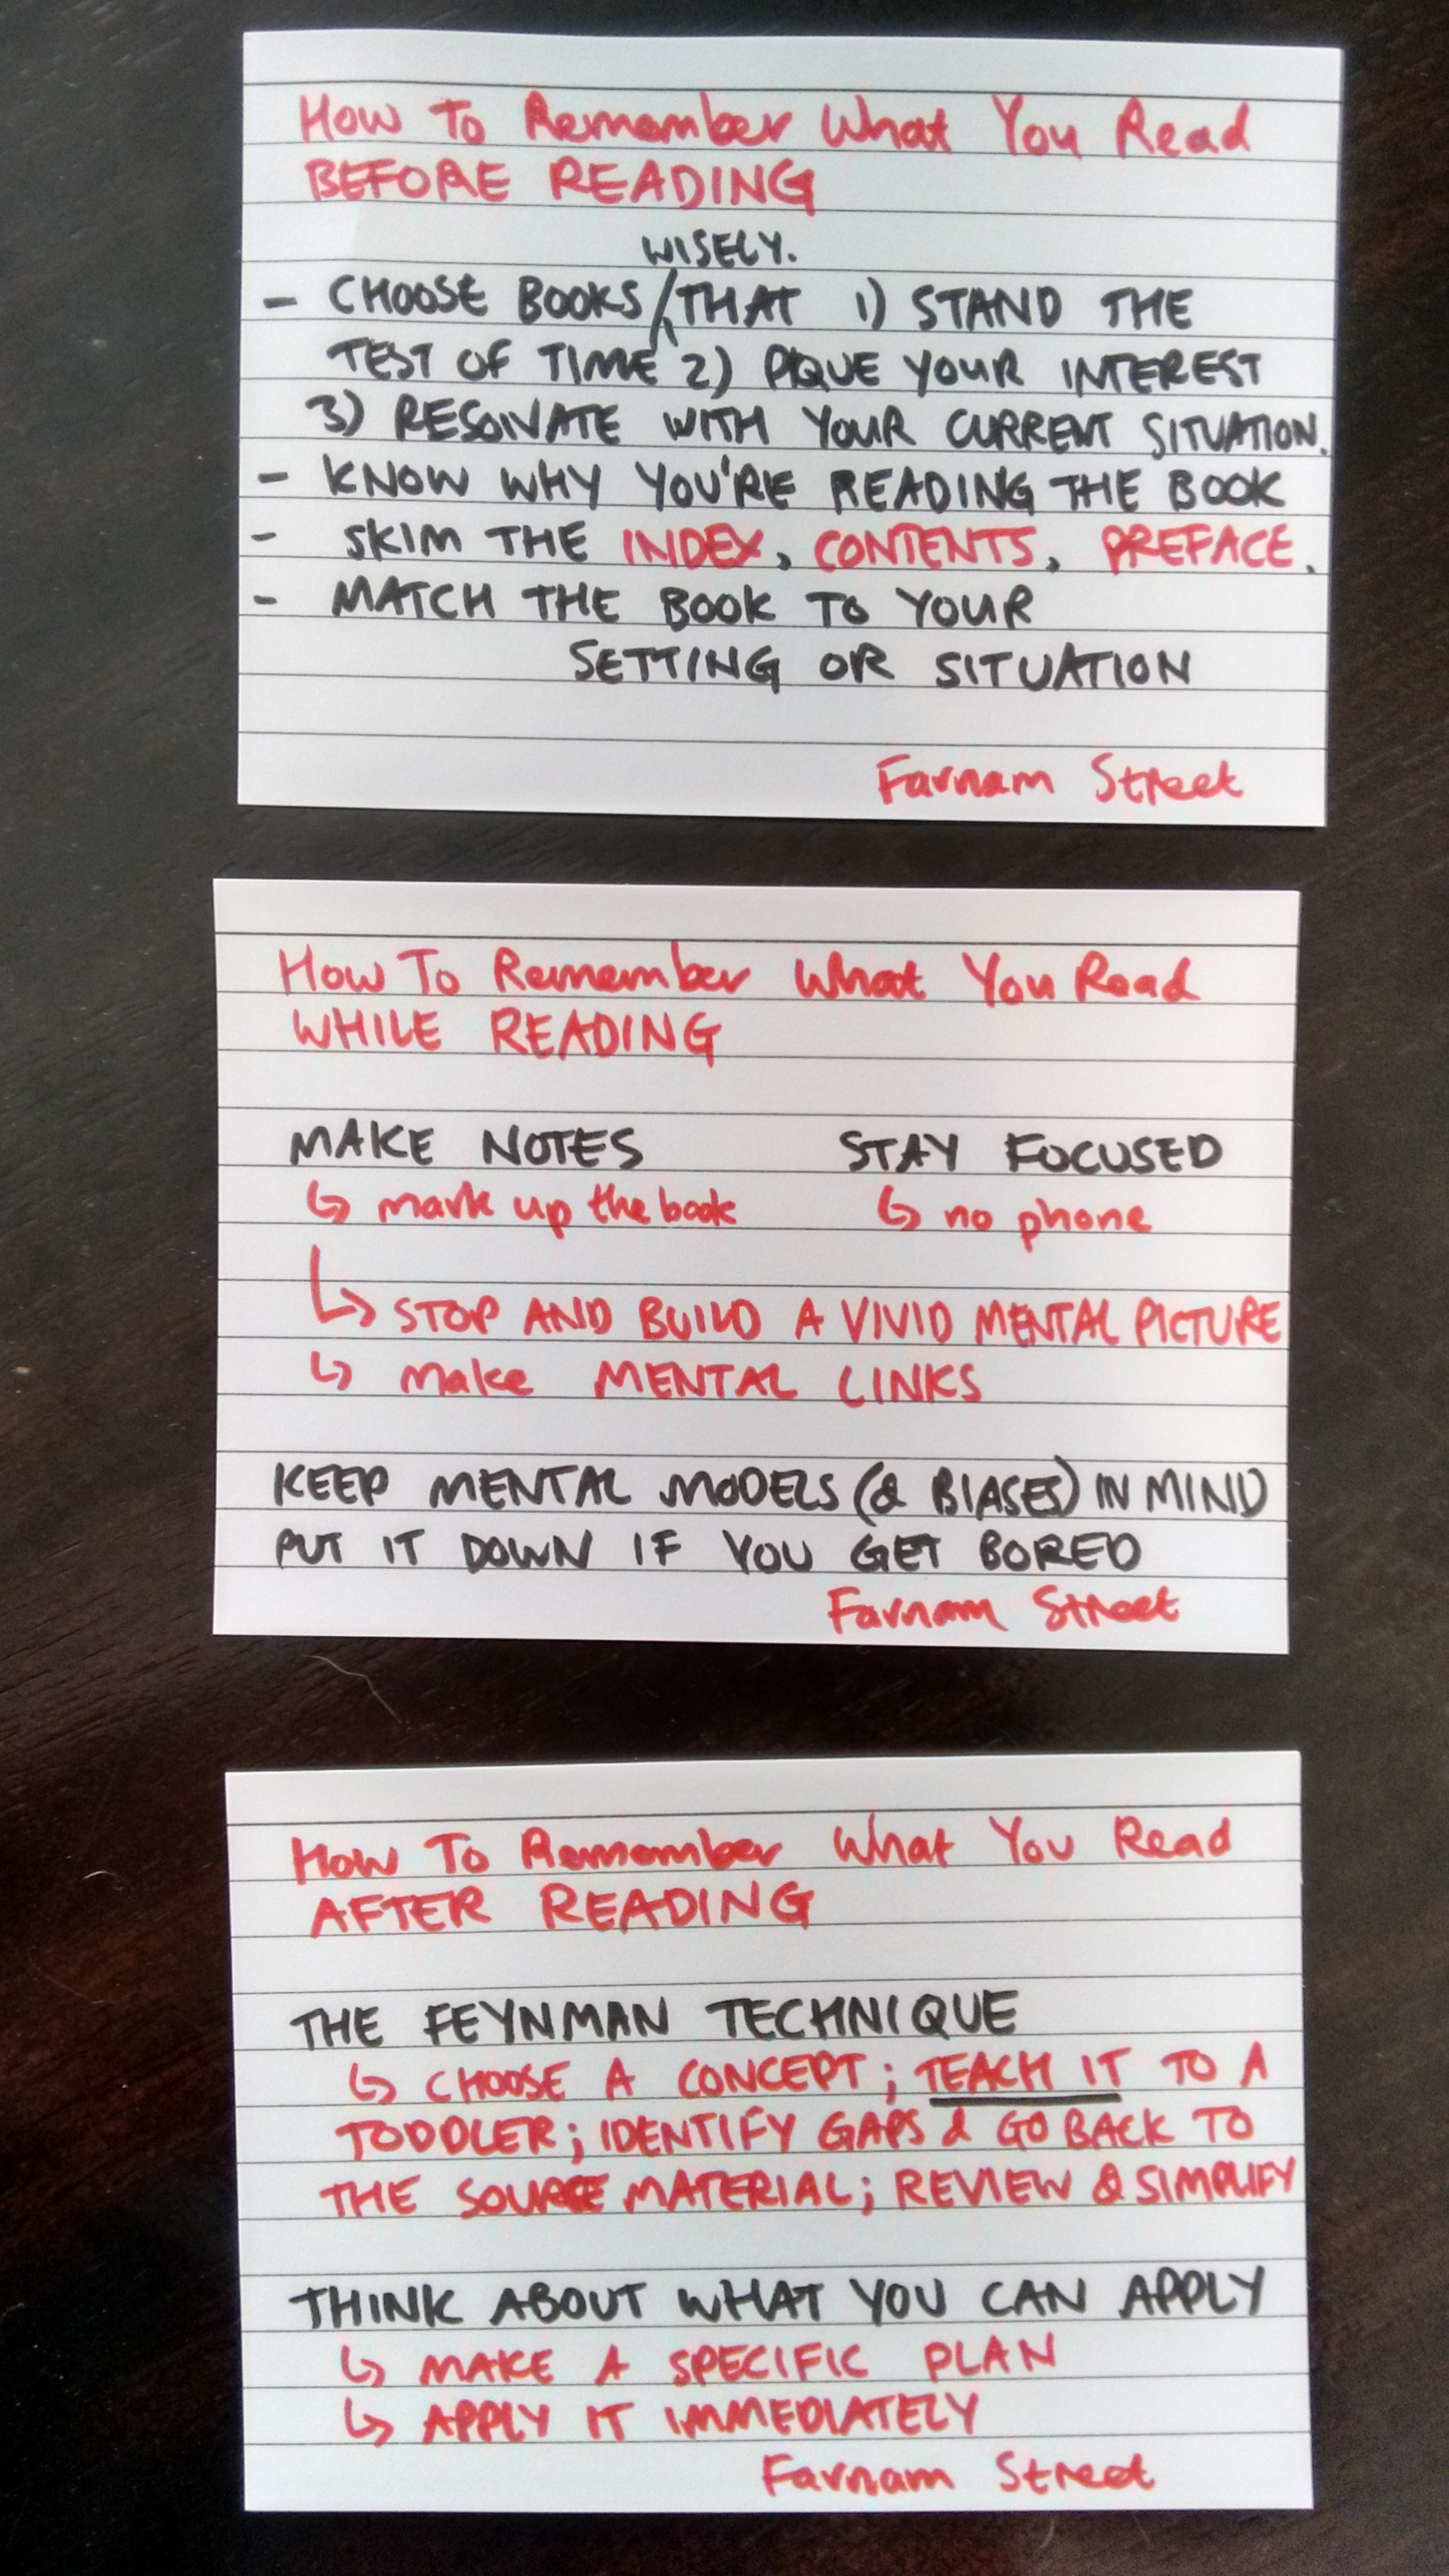 How To Remember What You Read
BEFORE READING
WISELY.
- CHOOSE BOOKS THAT 1) STAND THE
TEST OF TIME 2) PIQUE YOUR INTEREST
3) RESONATE WITH YOUR CURRENT SITUATION.
- KNOW WHY YOU'RE READING THE BOOK
- SKIM THE INDEX, CONTENTS, PREFACE.
- MATCH THE BOOK TO YOUR
SETTING OR SITUATION
Farnam Street
How To Remember What You Read
WHILE READING
MAKE NOTES STAY FOCUSED
↳ mark up the book ↳ no phone
↳ STOP AND BUILD A VIVID MENTAL PICTURE
↳ make MENTAL LINKS
KEEP MENTAL MODELS (& BIASES) IN MIND
PUT IT DOWN IF YOU GET BORED
Farnam Street
How To Remember What You Read
AFTER READING
THE FEYNMAN TECHNIQUE
↳ CHOOSE A CONCEPT; TEACH IT TO A
TODDLER; IDENTIFY GAPS & GO BACK TO
THE SOURCE MATERIAL; REVIEW & SIMPLIFY
THINK ABOUT WHAT YOU CAN APPLY
↳ MAKE A SPECIFIC PLAN
↳ APPLY IT IMMEDIATELY
Farnam Street